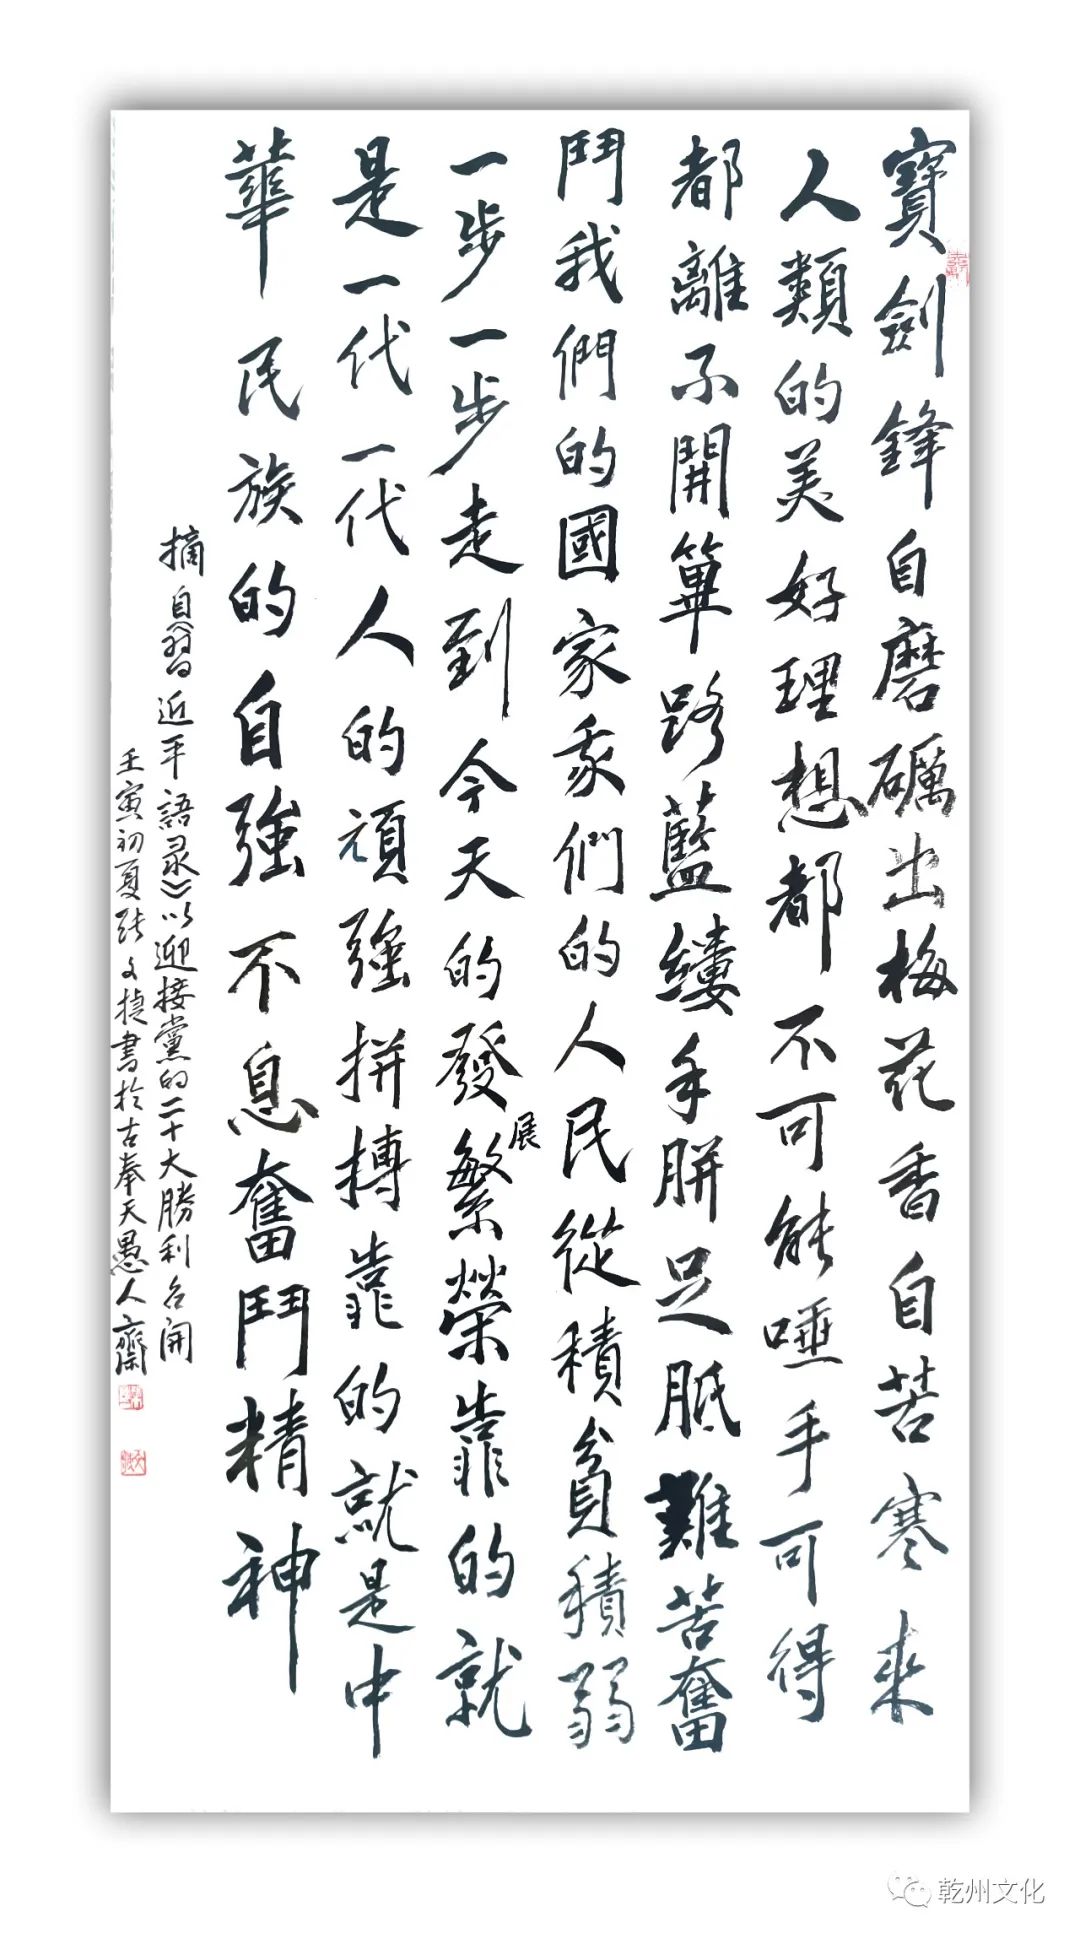 寶劍鋒自磨礪出梅花香自苦寒来
人類的美好理想都不可能唾手可得
都離不開篳路藍縷手胼足胝難苦奮
鬥我們的國家我們的人民從積貧積弱
一步一步走到今天的發展繁榮靠的就
是一代一代人的頑強拼搏靠的就是中
華民族的自強不息奮鬥精神
摘自習近平語录》以迎接黨的二十大勝利召開
壬寅初夏張文捷書於古奉天愚人齋
乾州文化